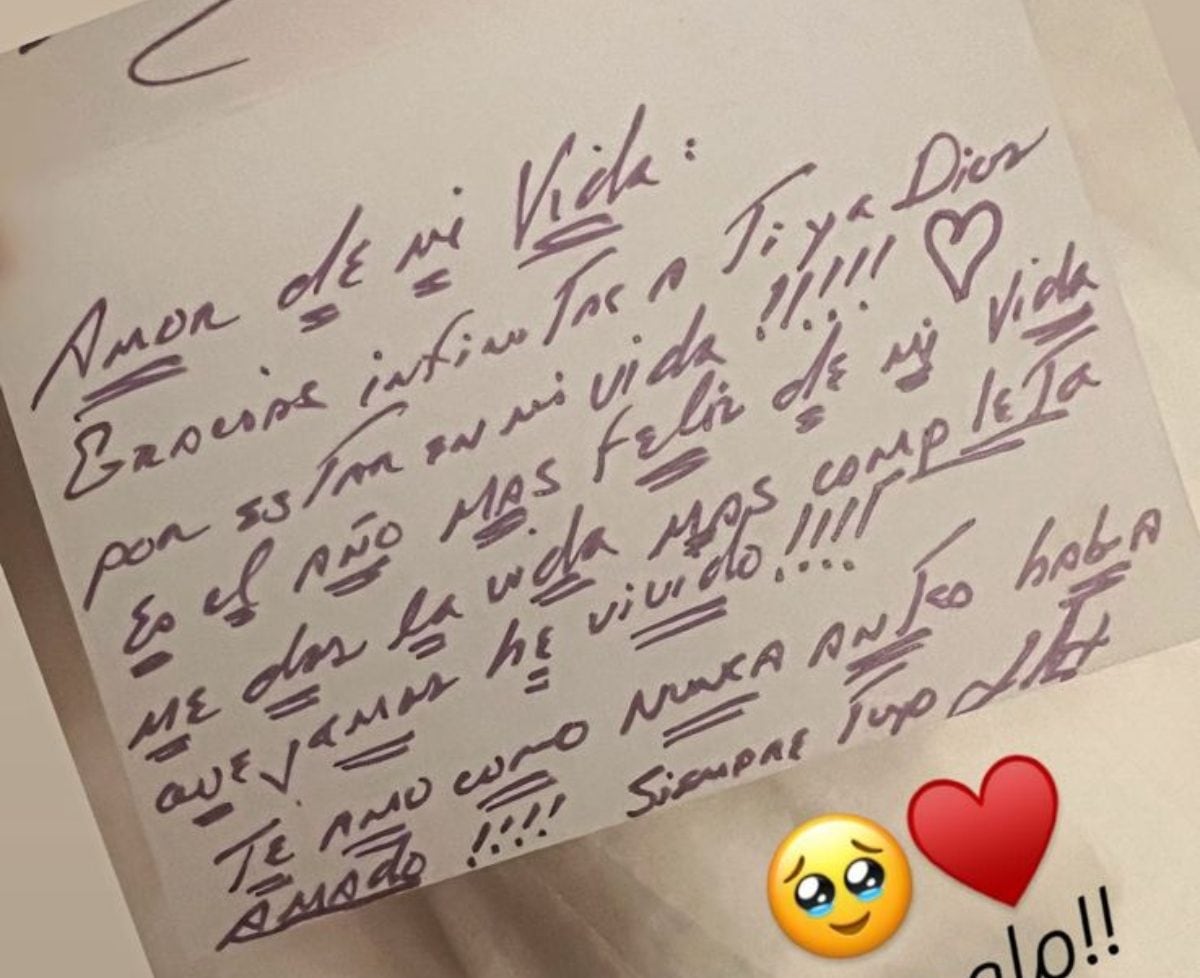 Amor de mi Vida:
Gracias infinitas a Ti y a Dios
por estar en mi vida !!!!! ♡
Es el año mas feliz de mi vida
me das la vida mas completa
que jamas he vivido !!!!
Te amo como nunca antes había
amado !!!! Siempre tuyo